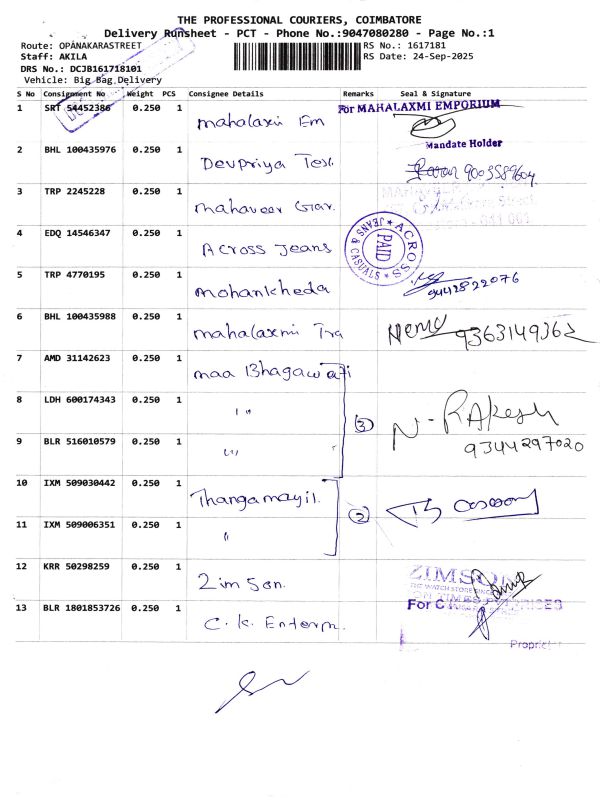 THE PROFESSIONAL COURIERS, COIMBATORE
Delivery Runsheet - PCT - Phone No.:9047080280 - Page No.:1
Route: OPANAKARASTREET
RS No.: 1617181
Staff: AKILA
RS Date: 24-Sep-2025
DRS No.: DCJB161718101
Vehicle: Big Bag Delivery
S No Consignment No Weight PCS Consignee Details Remarks Seal & Signature
1 SRT 54452386 0.250 1 mahalaxmi Em For MAHALAXMI EMPORIUM
Mandate Holder
2 BHL 100435976 0.250 1 Devpriya Tex. 9003589604
3 TRP 2245228 0.250 1 mahaveer Gar.
4 EDQ 14546347 0.250 1 Across Jeans ACROSS JEANS & CASUALS PAID
5 TRP 4770195 0.250 1 mohankheda 9442822076
6 BHL 100435988 0.250 1 mahalaxmi Tra 9363149362
7 AMD 31142623 0.250 1 maa Bhagawati
8 LDH 600174343 0.250 1 " (3) N-Rakesh
9 BLR 516010579 0.250 1 " 9344297020
10 IXM 509030442 0.250 1 Thangamayil. (2)
11 IXM 509006351 0.250 1 "
12 KRR 50298259 0.250 1 Zimson. ZIMSON
13 BLR 1801853726 0.250 1 C. K. Enterpr. For C
Propriet